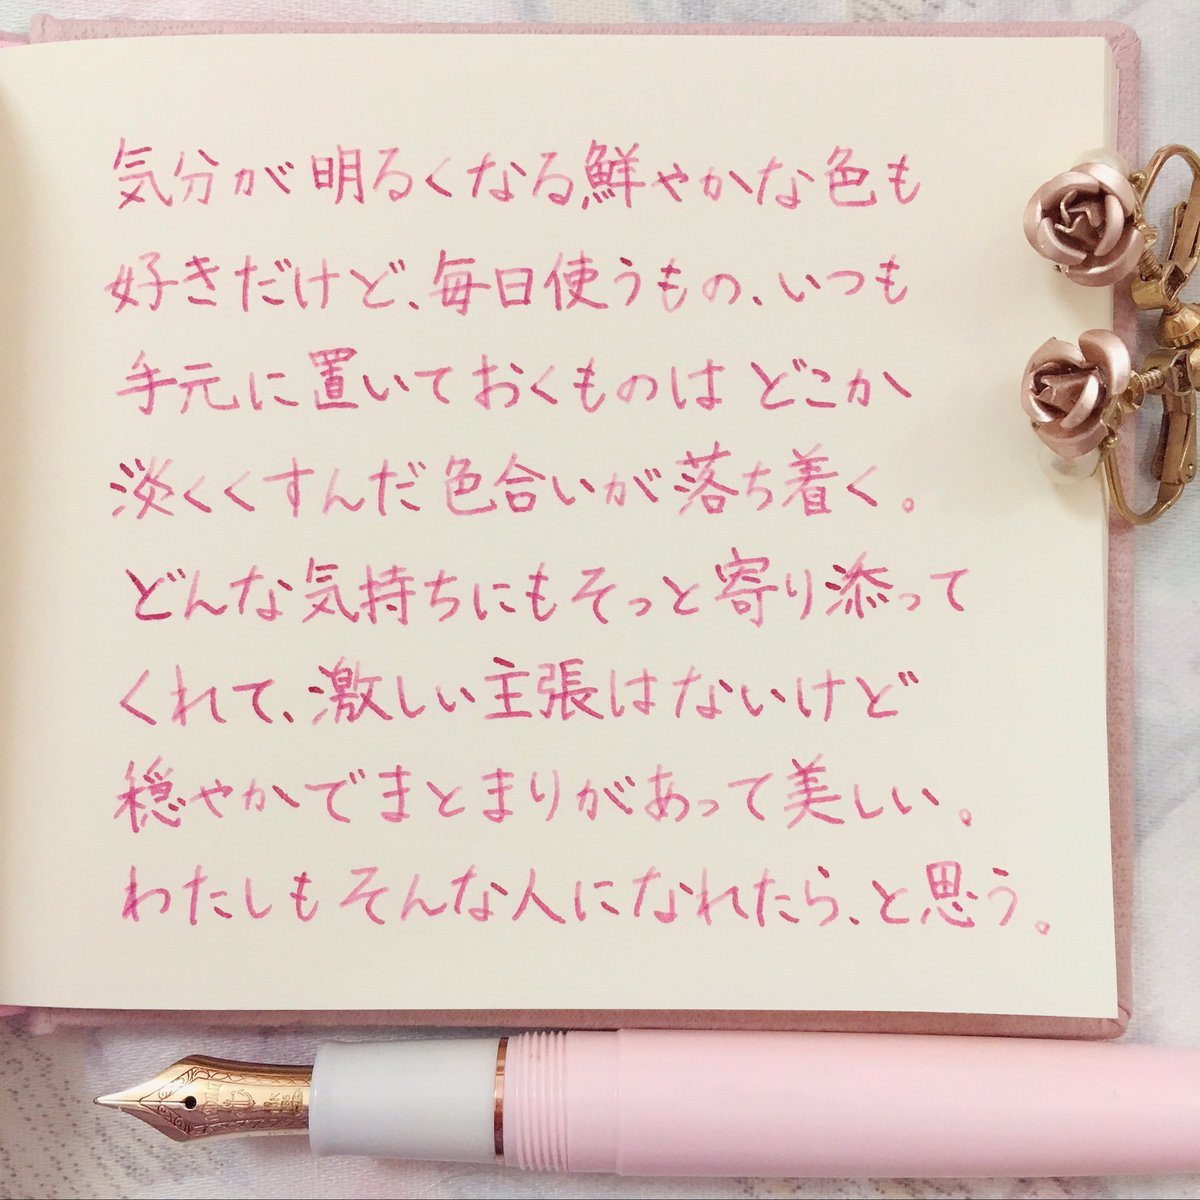 気分が明るくなる鮮やかな色も
好きだけど、毎日使うもの、いつも
手元に置いておくものは どこか
淡くくすんだ色合いが落ち着く。
どんな気持ちにもそっと寄り添って
くれて、激しい主張はないけど
穏やかでまとまりがあって美しい。
わたしもそんな人になれたら、と思う。